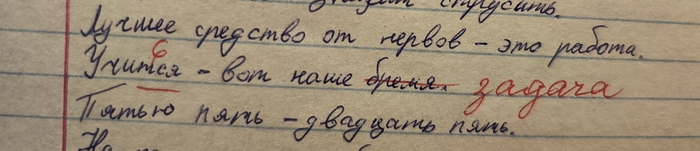 струсить.
Лучшее средство от нервов – это работа.
Учиться – вот наше бремя. задача
Пятью пять – двадцать пять.